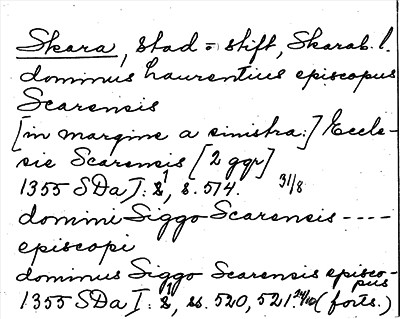 Skara, stad = stift, Skarab. l.
dominus Laurentius episcopus
Scarensis
[in margine a sinistra:] Eccle-
sie Scarensis [2 ggr]
1355 SDa I: 1, s. 574. 31/8
domini Siggo Scarensis ----
episcopi
dominus Siggo Scarensis episco-
pus
1355 SDa I: 1, ss. 520, 521. 24/10 (forts.)